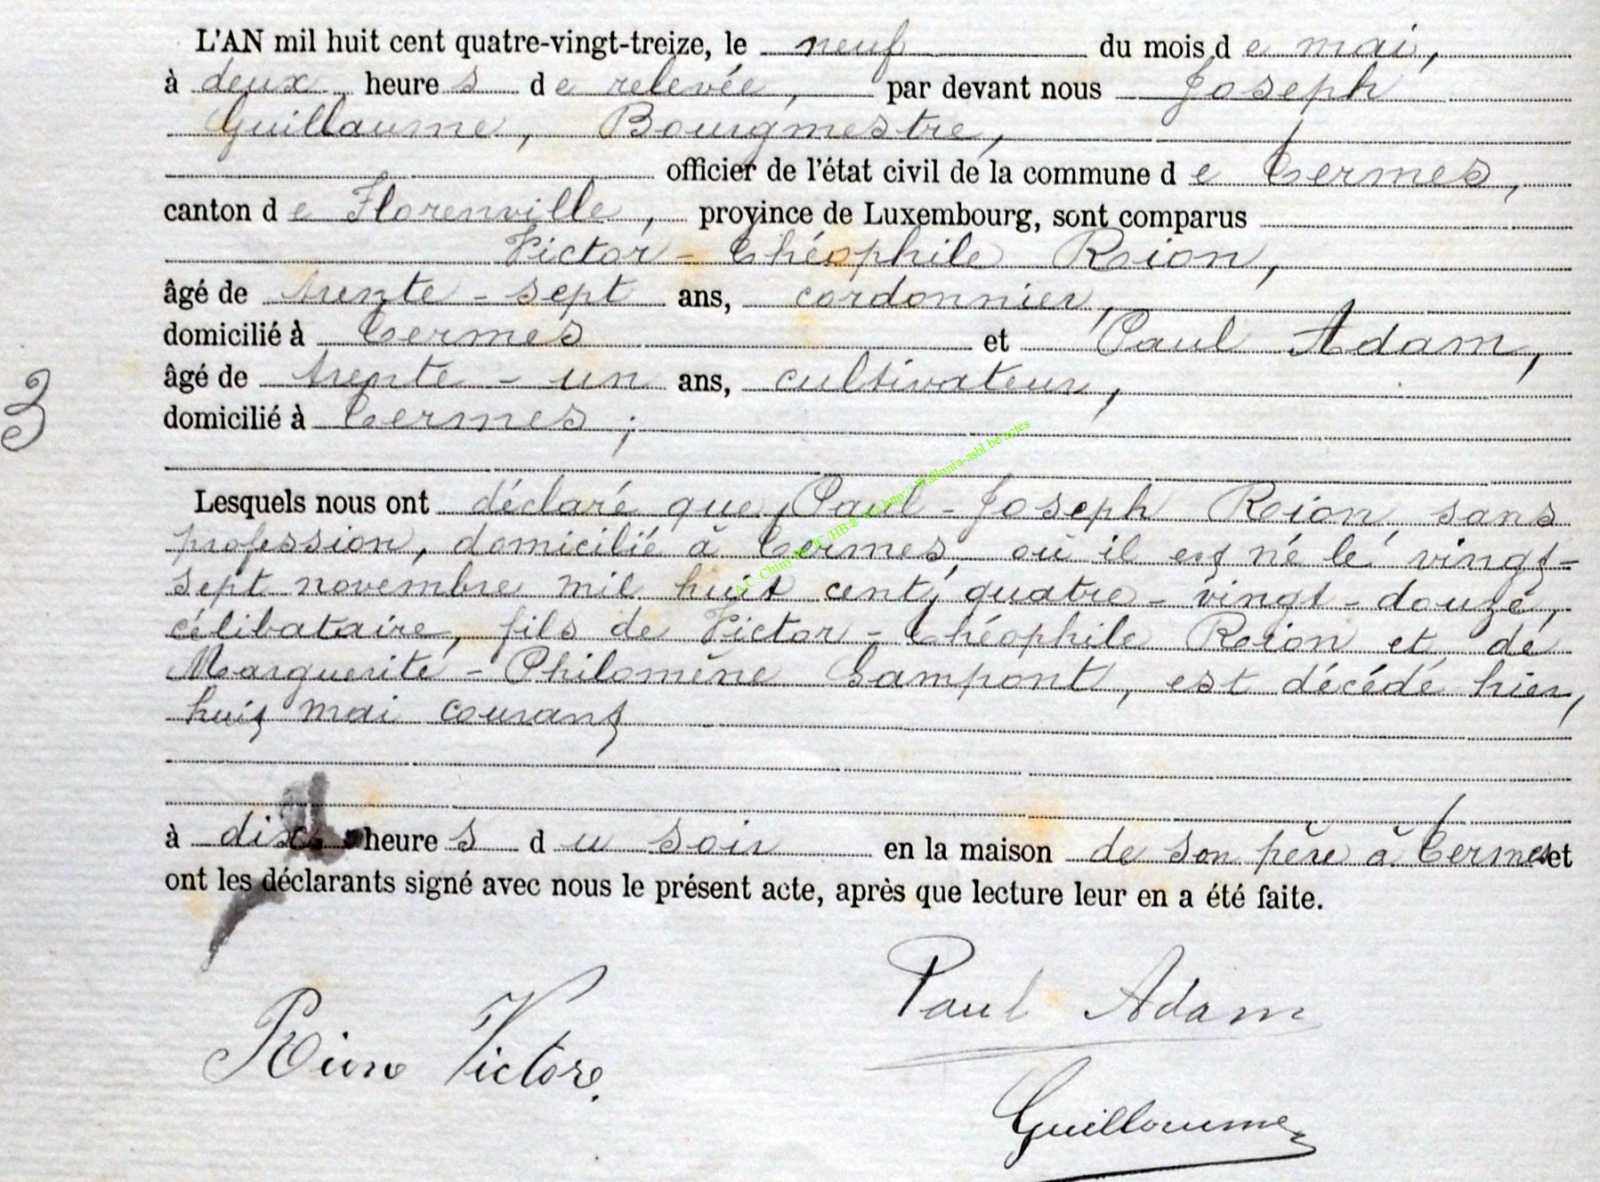 L'AN mil huit cent quatre-vingt-treize, le neuf du mois de mai,
à deux heures de relevée, par devant nous Joseph
Guillaume, Bourgmestre,
officier de l'état civil de la commune de Termes,
canton de Florenville, province de Luxembourg, sont comparus
Victor-Théophile Rion,
âgé de trente-sept ans, cordonnier,
domicilié à Termes et Paul Adam,
âgé de trente-un ans, cultivateur,
3
domicilié à Termes;
Lesquels nous ont déclaré que Paul-Joseph Rion, sans
profession, domicilié à Termes, où il est né le vingt-
sept novembre mil huit cent quatre-vingt-douze,
célibataire, fils de Victor-Théophile Rion et de
Marguerite-Philomène Lampont, est décédé hier,
huit mai courant
à dix heures du soir en la maison de son père à Termes et
ont les déclarants signé avec nous le présent acte, après que lecture leur en a été faite.
Paul Adam
Rion Victor.
Guillaume